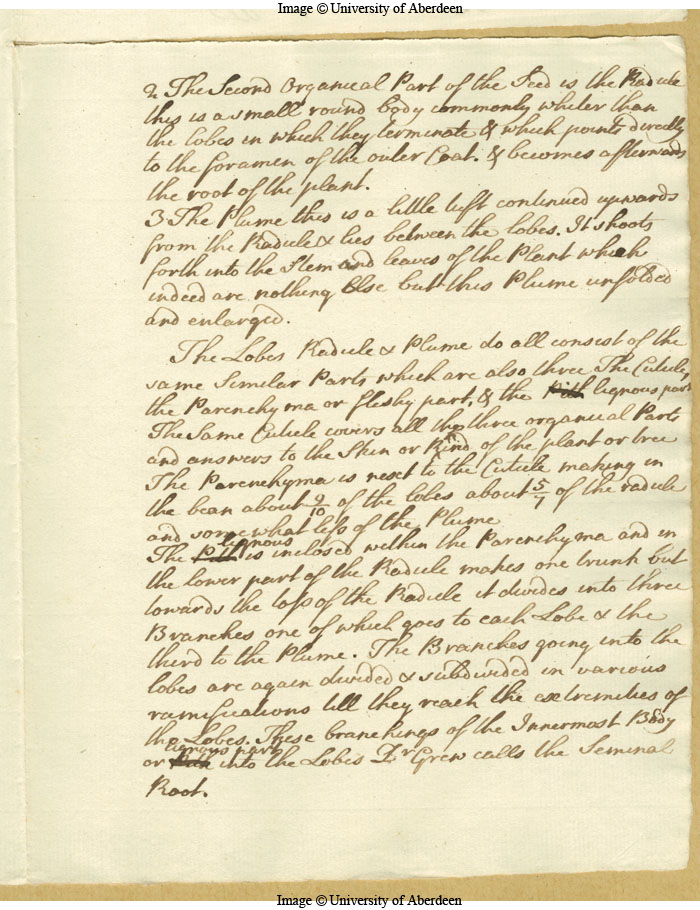 Image © University of Aberdeen
2 The Second Organical Part of the Seed is the Radicle
this is a small round body commonly whiter than
the lobes in which they terminate & which points directly
to the foramen of the outer Coat. & becomes afterwards
the root of the plant.
3 The Plume this is a little tuft continued upwards
from the Radicle & lies between the lobes. It shoots
forth into the Stem and leaves of the Plant which
indeed are nothing Else but this Plume unfolded
and enlarged.
The Lobes Radicle & Plume do all consist of the
same Similar Parts which are also three The Cuticle,
the Parenchyma or fleshy part, & the Pith lignous part
The Same Cuticle covers all the three organical Parts
and answers to the Skin or Rind of the plant or tree
The Parenchyma is next to the Cuticle making in
the bean about 9/10 of the lobes about 5/7 of the radicle
and somewhat less of the Plume
lignous
The Pith is inclosed within the Parenchyma and in
the lower part of the Radicle makes one trunk but
towards the top of the Radicle it divides into three
Branches one of which goes to each Lobe & the
third to the Plume. The Branches going into the
lobes are again divided & subdivided in various
ramifications till they reach the extremities of
the Lobes. These branchings of the Innermost Body
lignous part
or Pith into the Lobes Dr Grew calls the Seminal
Root.
Image © University of Aberdeen